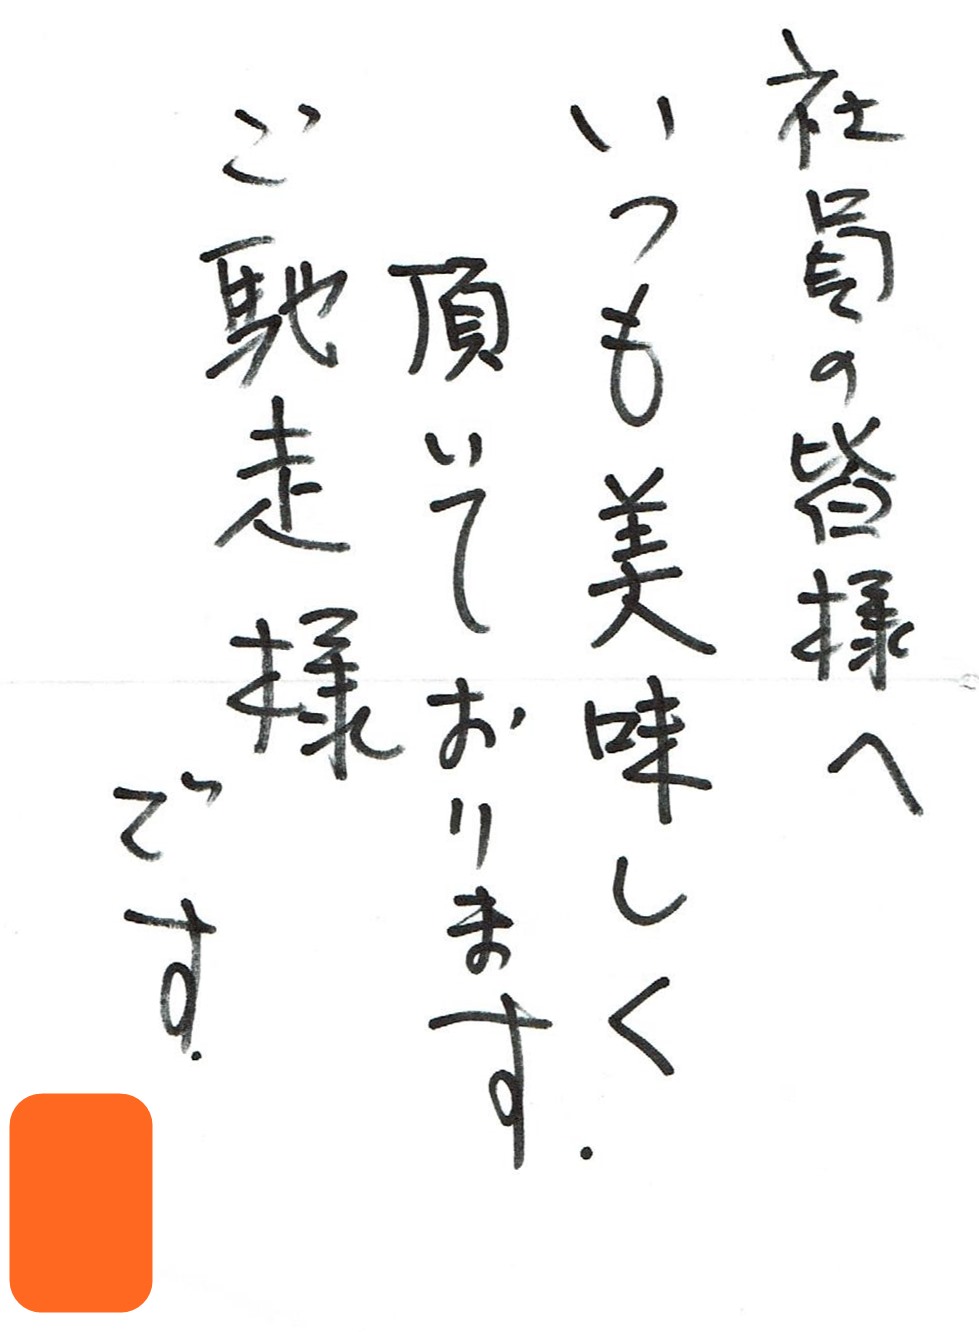 社員の皆様へ
いつも美味しく
頂いております.
ご馳走様
です.